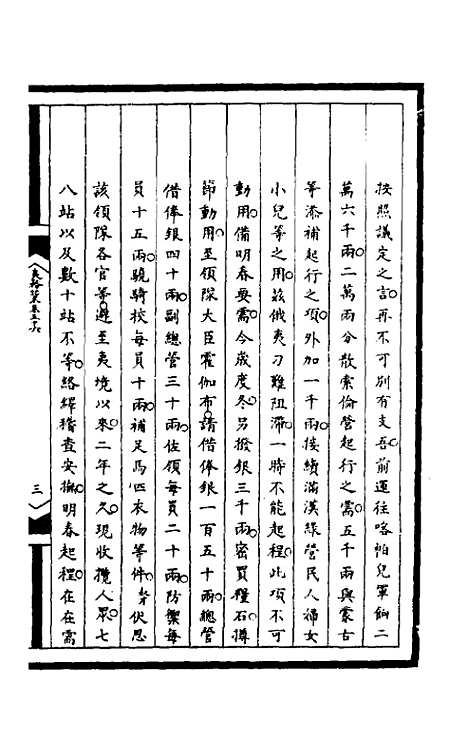 按照議定之言再不可別有支吾前運往喀帕兒軍餉二
萬六千兩二萬兩分散索倫營起行之需五千兩與蒙古
等添補起行之項外加一千兩接續滿漢綠營民人婦女
小兒等之用茲俄夷刁難阻滯一時不能起程此項不可
動用備明春要需今歲度冬另撥銀三千兩密買糧石撙
節動用至領隊大臣霍伽布請借俸銀一百五十兩總管
借俸銀四十兩副總管三十兩佐領每員二十兩防禦每
員十五兩驍騎校每員十兩補足馬匹衣物等件等伏思
該領隊各官等避至夷境以來二年之久現收攬人眾七
八站以及數十站不等絡繹稽查安撫明春起程在在需
夷務 卷五十六
三